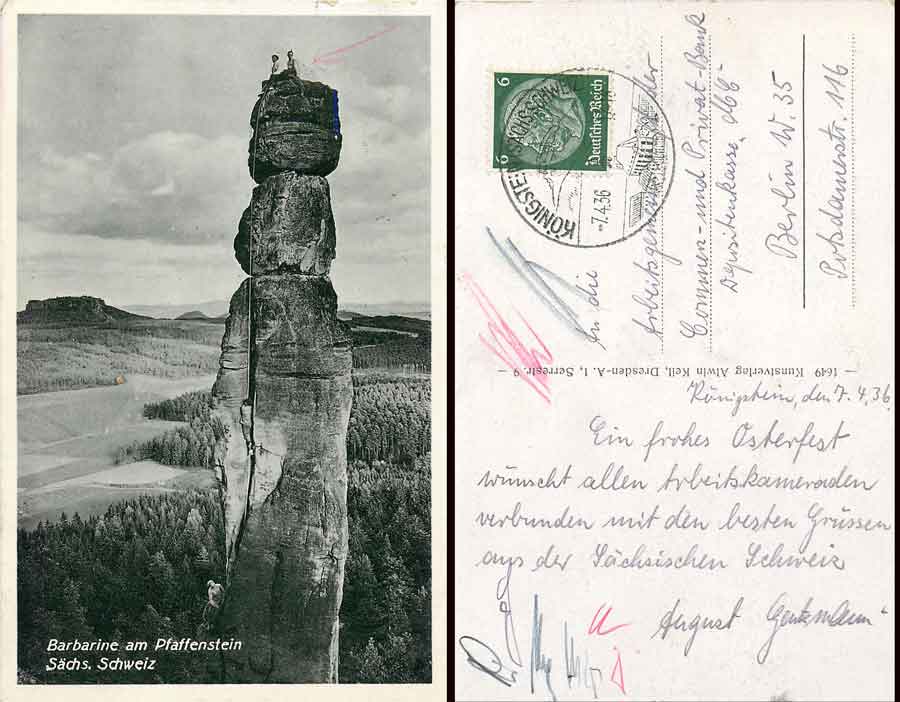 Barbarine am Pfaffenstein
Sächs. Schweiz
6
6
Deutsches Reich
KÖNIGSTEIN SÄCHS. SCHWEIZ
-7.4.36
An die
Arbeitsgemein der
Commerz- und Privat-Bank
Depositenkasse
Berlin W. 35
Potsdamerstr. 116
— 1649 Kunstverlag Alwin Keil, Dresden-A. 1, Serrestr. 9 —
Königstein, den 7.4.36.
Ein frohes Osterfest
wünscht allen Arbeitskameraden
verbunden mit den besten Grüssen
aus der Sächsischen Schweiz
August